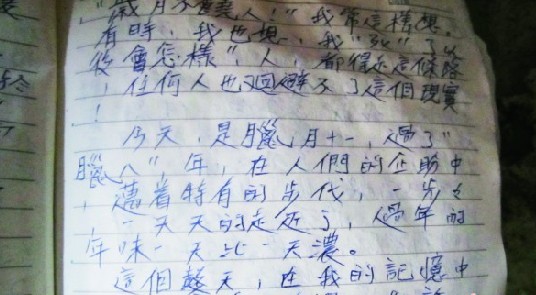 "歲月不饒人!"我常這樣想。
有時,我也想,我"死"了以
後會怎樣",人,都得走這條路
,任何人也迴避不了這個現實
!
今天,是臘月十一,過了"
臘八",年,在人們的企盼中
,邁着特有的步伐,一步々
,一天天的走近了,過年的
年味一天比一天濃。
這個冬天,在我的記憶中